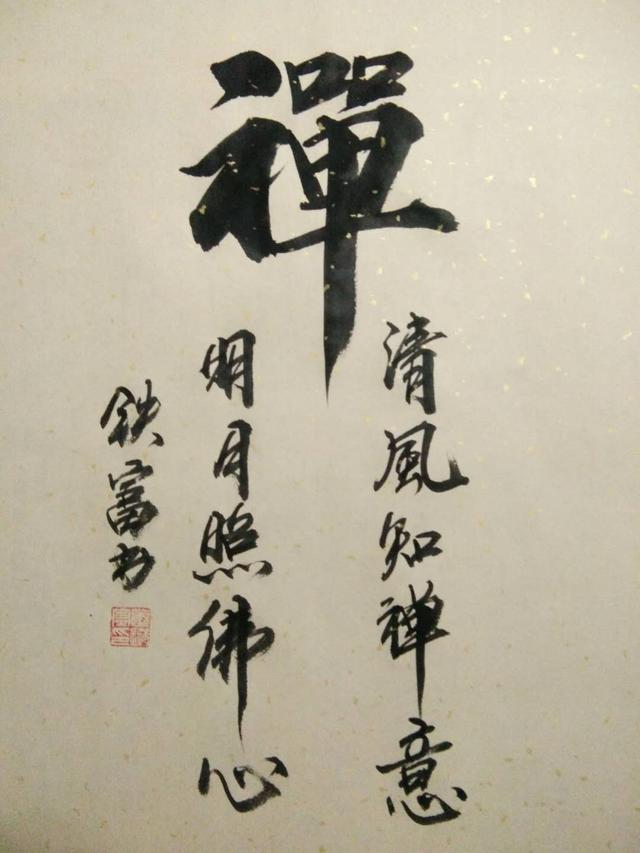 禪
清風知禅意
明月照佛心
鉄富书